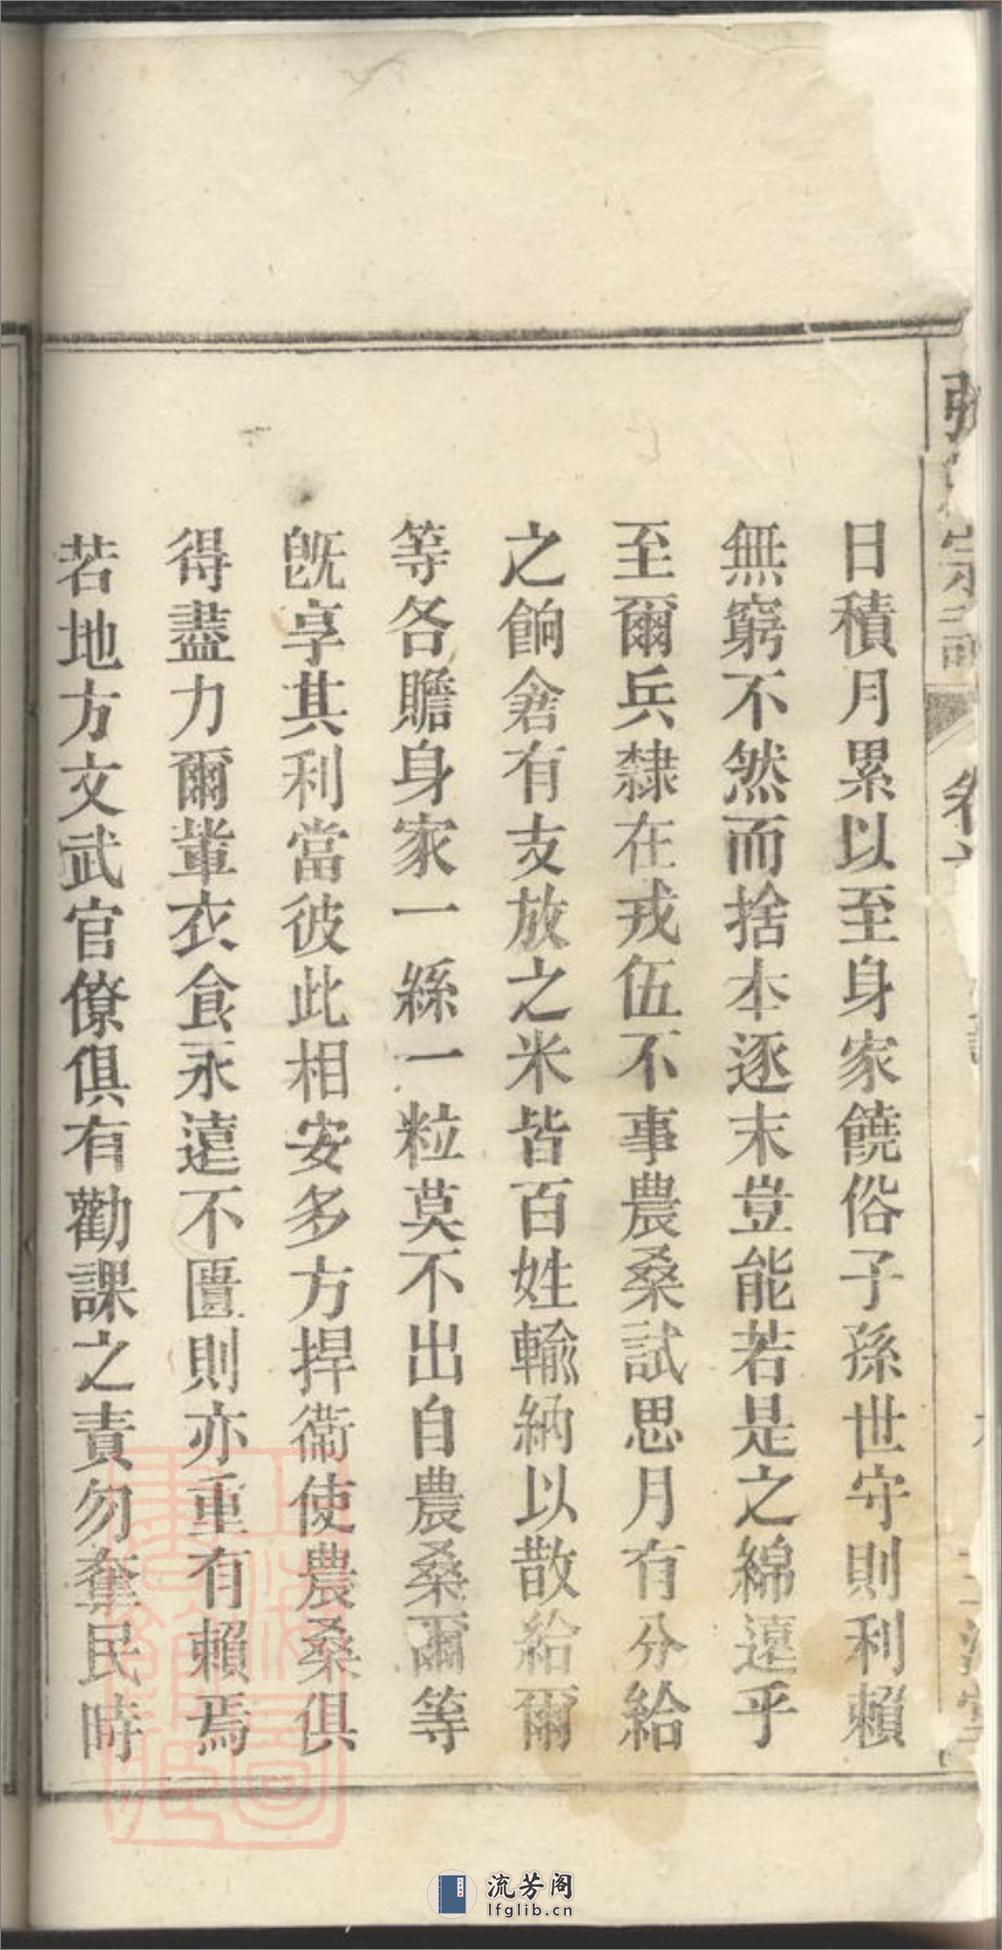 日積月累以至身家饒俗子孫世守則利賴
無窮不然而捨本逐末豈能若是之綿遠乎
至爾兵隸在戎伍不事農桑試思月有分給
之餉倉有支放之米皆百姓輸納以散給爾
等各贍身家一絲一粒莫不出自農桑爾等
既享其利當彼此相安多方捍衞使農桑俱
得盡力爾輩衣食永遠不匱則亦重有賴焉
若地方文武官僚俱有勸課之責勿奪民時
流芳阁
lfglib.cn